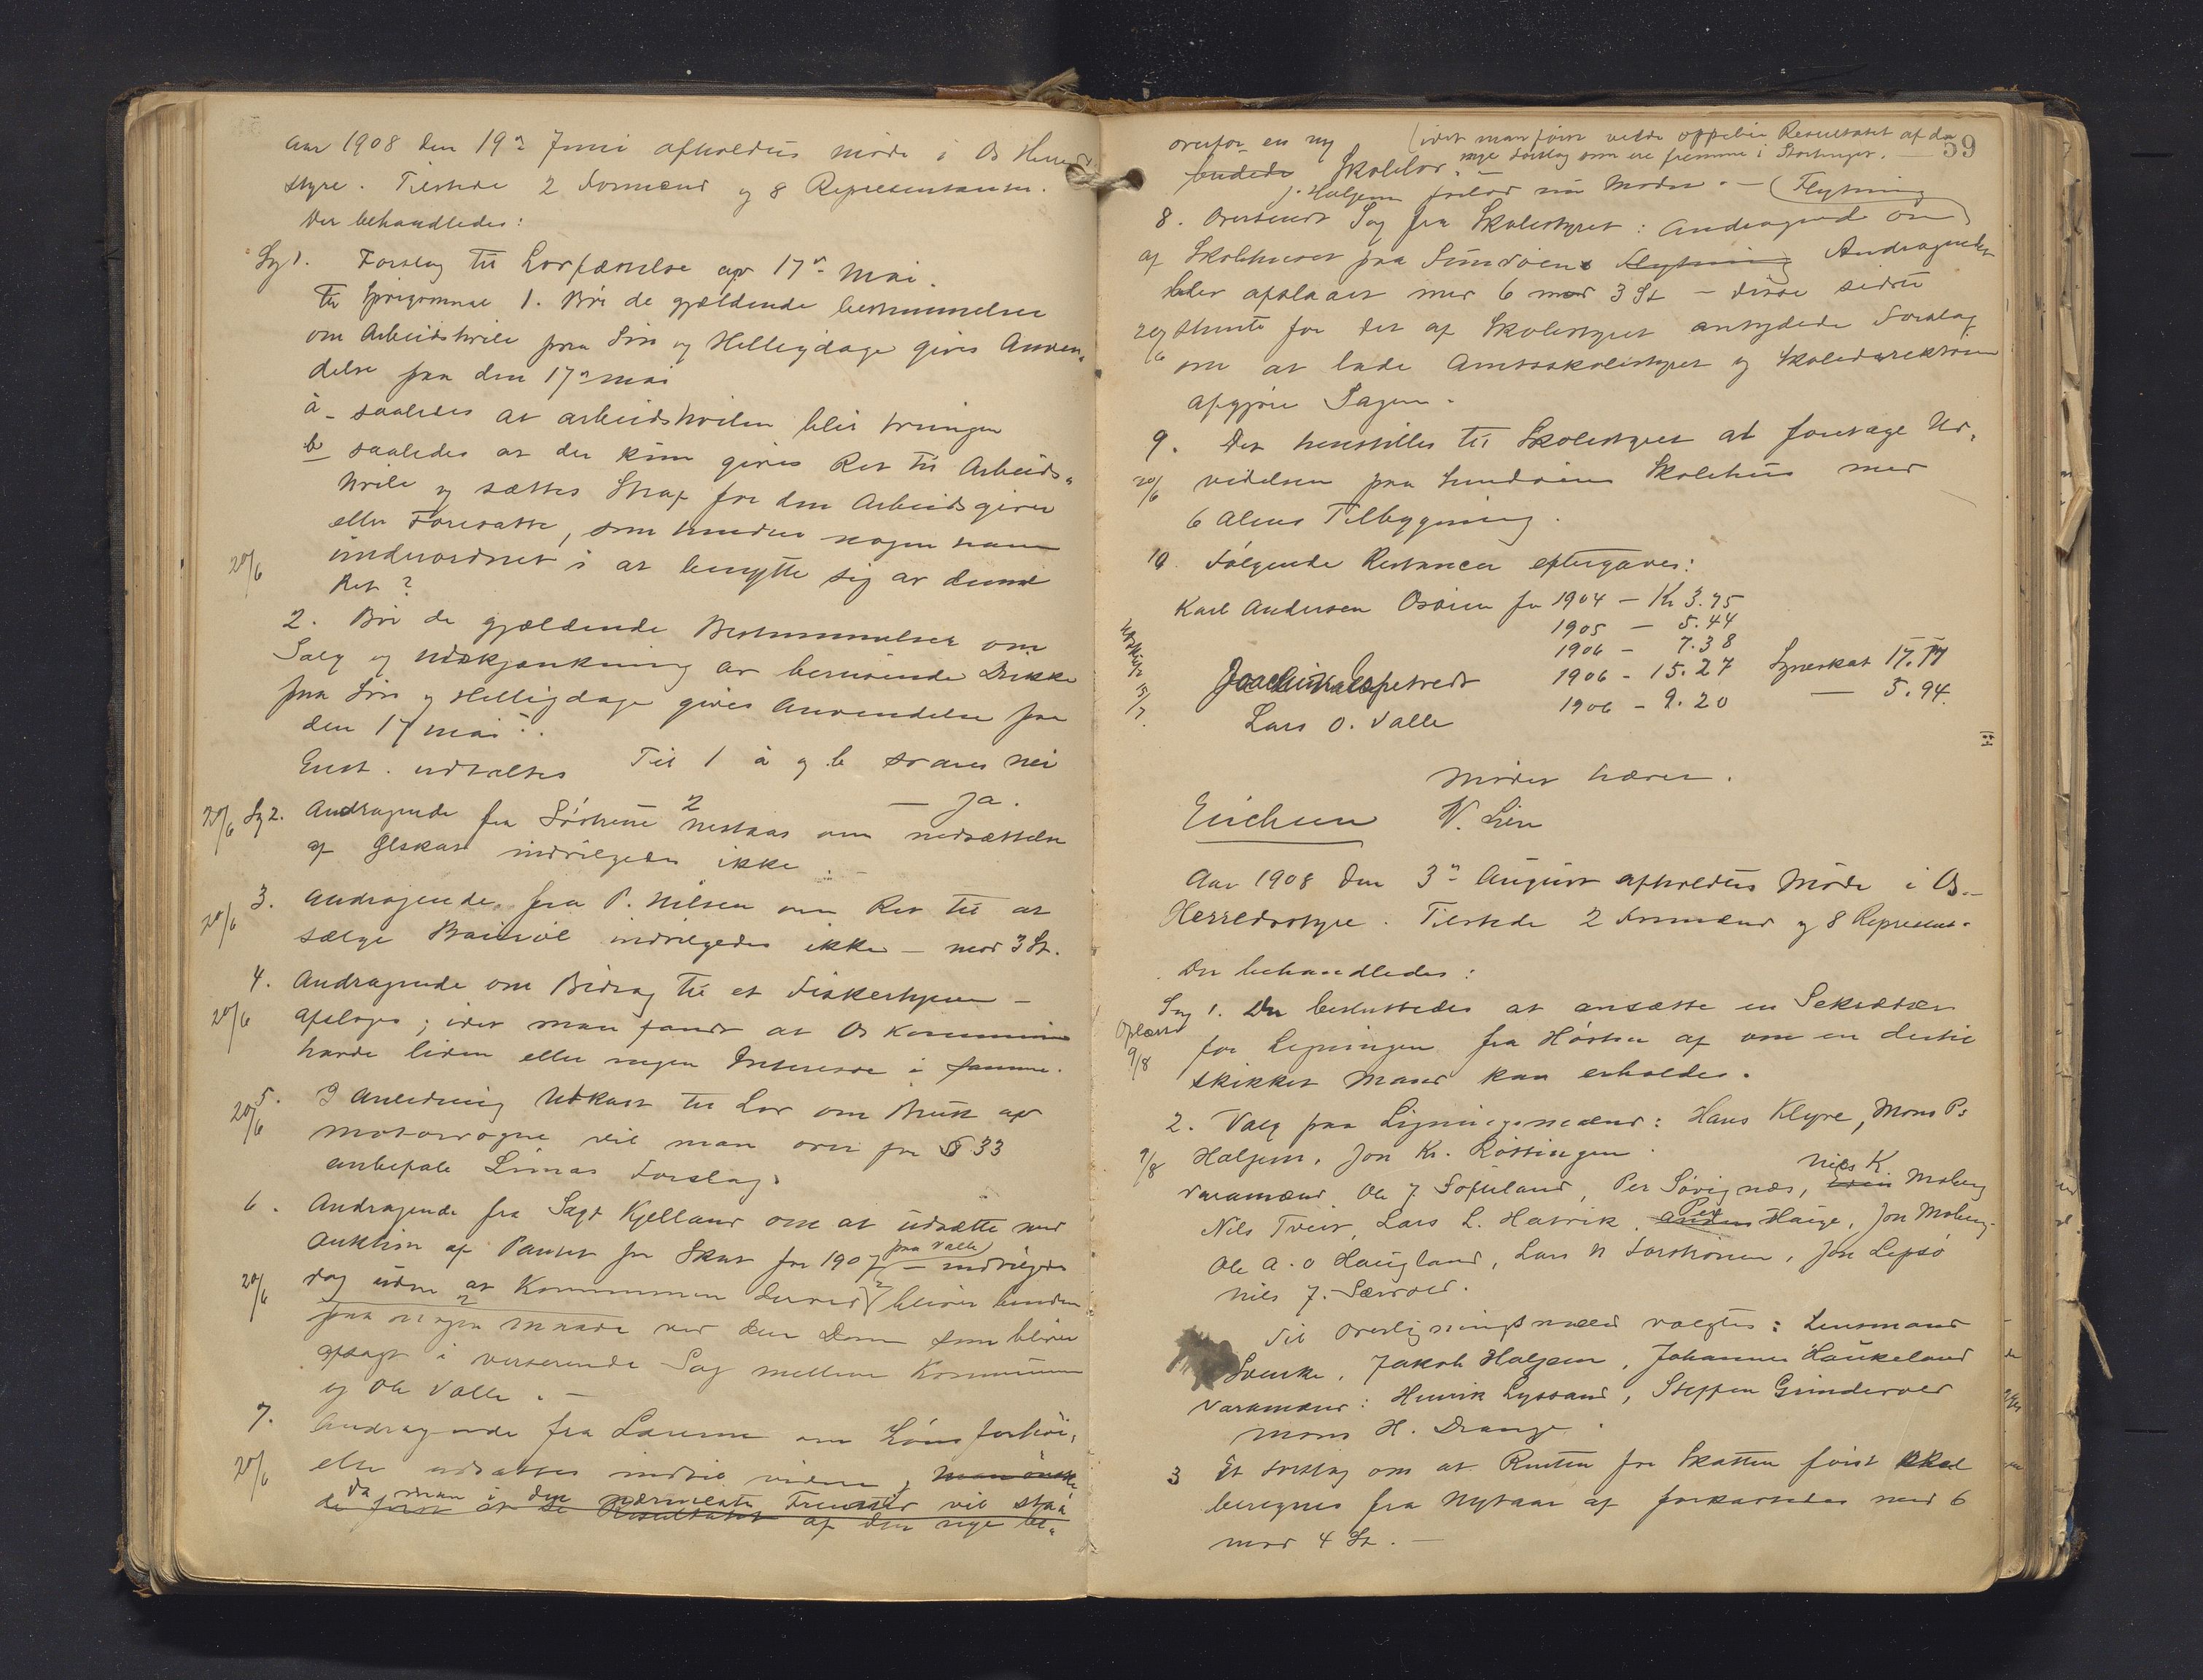 Aar 1908 den 19de Juni afholdtes møde i Os Herreds
styre. Tilstede 2 Formænd og 8 Repræsentanter.
Der behandledes:
Sg 1. Forslag til Lov fæstelse av 17de Mai.
Til Spørgsmaal 1. Bør de gjældende bestemmelser
om Arbeidshvile paa Søn og Helligdage gives Anven-
delse paa den 17de mai
a - saaledes at arbeidshvilen blir tvungen
b saaledes at der kun gives Ret til Arbeids-
hvile og sættes Straf for den Arbeidsgiver
eller Foresatte, som hindrer nogen ham
20/6 underordnet i at benytte sig av denne
Ret?
2. Bør de gjældende Bestemmelser om
Salg og Udskjænkning av berusende Drikke
paa Søn og Helligdage gives Anvendelse paa
den 17 mai?
Enst. udtaltes Til 1 a og b svares nei
2 — Ja.
20/6 Sg 2. Andragende fra Nestaas om nedsættelse
af skat indvilgedes ikke. -
20/6 3. Andragende fra P. Nilsen om Ret til at
sælge indvilgedes ikke - mod 3 St.
4. Andragende om Bidrag til et Fiskerhjem -
20/6 afsloges; idet man fandt at Os Kommune
havde liden eller ingen Interesse i samme.
5. I Anledning Utkast til Lov om Bruk av
20/6 motorvogne vil man ovenfor § 33
anbefale Forslag.
6. Andragende fra Sagf Kjelland om at udsætte med
Auktion af Pantet for Skat for 1907 paa Valle - indvilgedes
20/6 dog uden at Kommunen derved bliver bunden
paa nogen maade ved den Dom som bliver
afsagt i verserende Sag mellem Kommunen
og Ole Valle. -
7. Andragende fra Lærerne om Lønsforhøi-
20/6 else udsattes indtil videre, man ønske
da man i den nærmeste Fremtid vil staa
de først at se Resultatet af den nye be-
59
overfor en ny (idet man først vilde oppebie Resultatet af de
nye Forslag som ere fremme i Stortinget. —
budede Skolelov. -
J. Haljem forlod nu Mødet. — (Flytning
8. Oversendt Sag fra Skolestyret: Andragende om
af Skolehuset paa Sundøen Flytning Andragendet
blev afslaaet med 6 mod 3 St - disse sidste
20/6 stemte for det af Skolestyret antydede Forslag
om at lade Amtsskolestyret og Skoledirektøren
afgjøre Sagen.
9. Det henstilles til Skolestyret at foretage Ud-
20/6 videlsen paa Sundøens Skolehus med
6 Alens Tilbygning.
10. Følgende Restancer eftergaves:
Karl Andersen Osøren for 1904 - Kr 3.75
1905 - 5.44
1906 - 7.38
1906 - 15.27 17.
Lars O. Valle 1906 - 9.20 — 5.94
15/7
Mødet hævet.
Erichsen N. Lien
Aar 1908 den 3de August afholdtes Møde i Os
Herredsstyre. Tilstede 2 Formænd og 8 Represent.
Der behandledes:
Sag 1. Der besluttedes at ansætte en Sekretær
Oplæst 9/8 for Ligningen fra Høsten af om en dertil
skikket Mand kan erholdes.
2. Valg paa Ligningsmænd: Hans Klyve, Mons Ps
9/8 Haljem, Jon Kr. Røttingen.
Varamænd Ole J Søfteland, Per Søvignæs, Nils K. Moberg
Nils Tveit, Lars L. Hatvik, Anders Per Hauge, Jon Moberg
Ole A. O Haugland, Lars N , Jon Lepsø
Nils J. Særvold.
Til Overligningsmænd valgtes: Lensmand
, Jakob Haljem, Johannes Haukeland
Varamænd: Henrik Lyssand, Steffen Grindevold
Mons H. Drange.
3 Et Forslag om at Renten for Skatten først skal
beregnes fra Nytaar af forkastedes med 6
mod 4 St. -